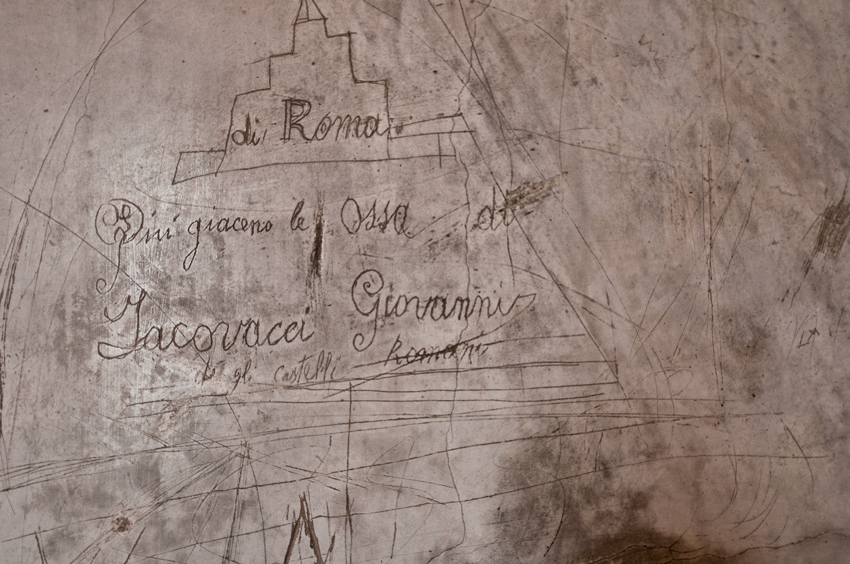 di Roma
Qui giaceno le Ossa di
Iacovacci Giovanni
gli castelli Romani